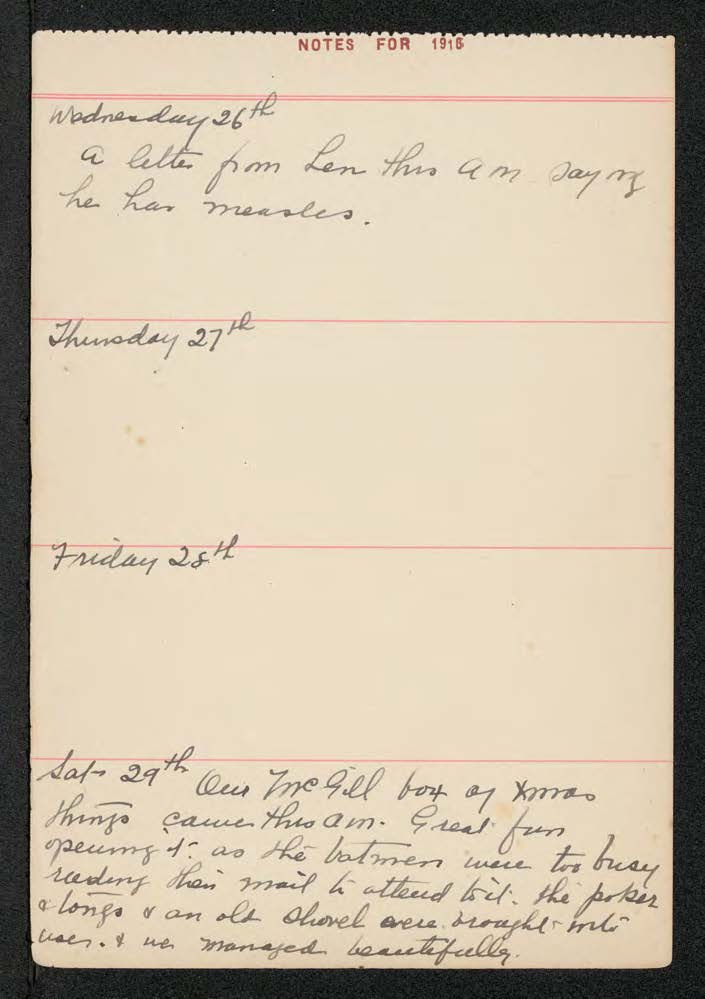 NOTES FOR 1916
Wednesday 26th
A letter from Len this a m saying
he has measles.
Thursday 27th
Friday 28th
Sat 29th Our McGill box of Xmas
things came this am. Great fun
opening it as the batmen were too busy
reading their mail to attend to it. the poker
& tongs & an old shovel were brought into
uses. & we managed beautifully.